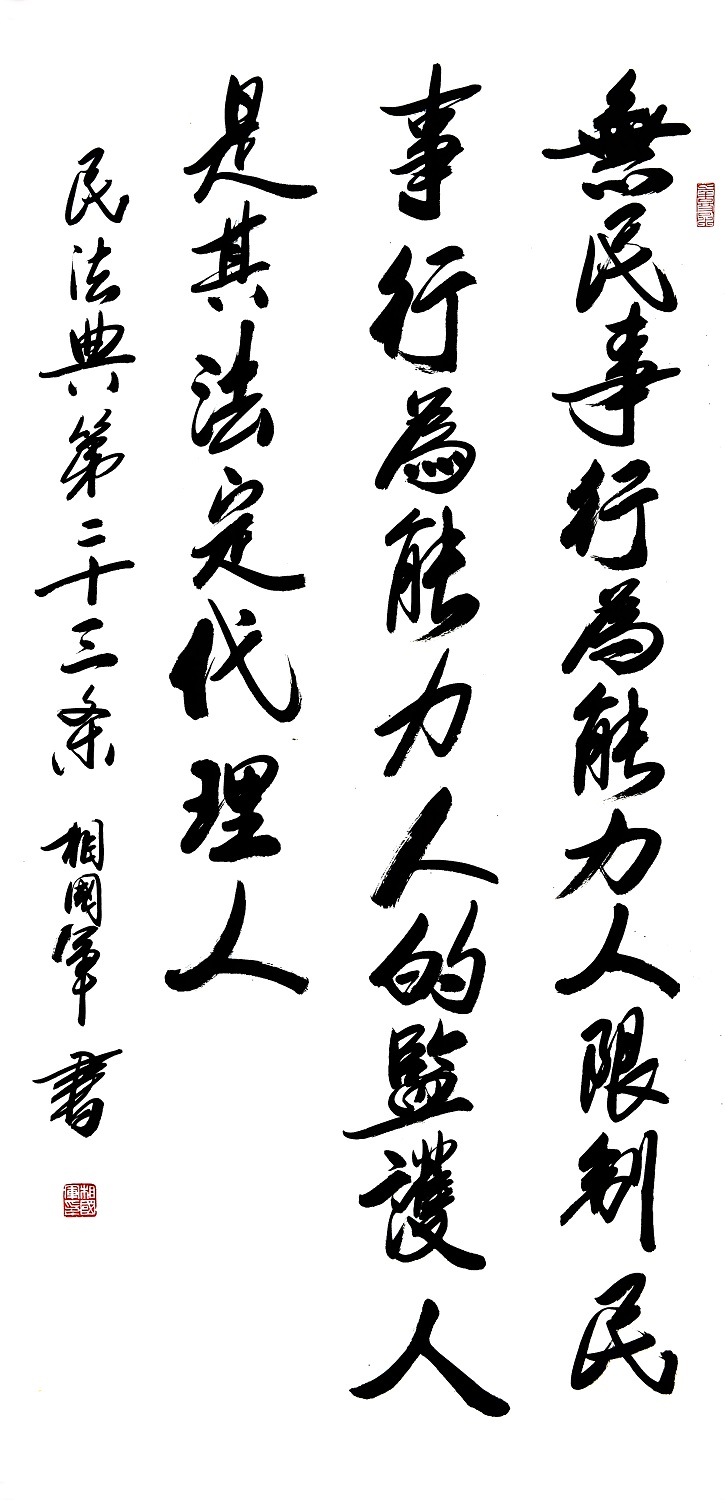 無民事行為能力人限制民
事行為能力人的監護人
是其法定代理人
民法典第二十三条 相國軍書
相國軍印